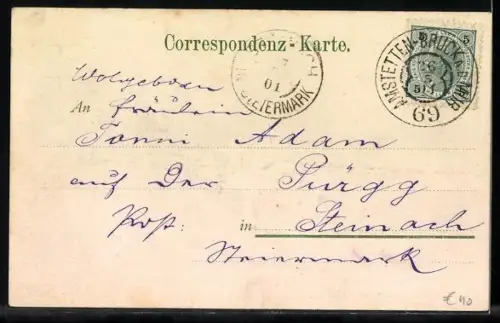 Correspondenz-Karte.
5
AMSTETTEN-BRUCK A.D.MUR
26
5
69
01
STEIERMARK
Wolgeboren
An Fräulein
Tonni Adam
auf Der Pürgg
Post: in Steinach
Steiermark
€40